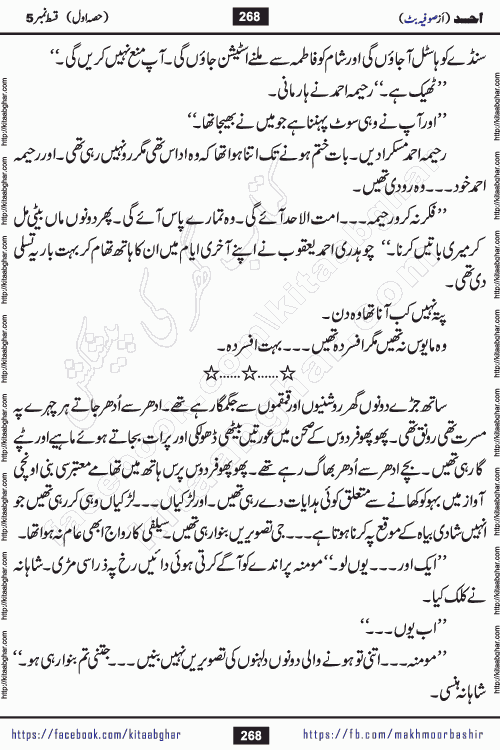 احمد (از صوفیہ بٹ)
268
(حصہ اول) قسط نمبر 5
سنڈے کو ہاسٹل آ جاؤں گی اور شام کو فاطمہ سے ملنے اسٹیشن جاؤں گی۔ آپ منع نہیں کریں گی۔‘‘
’’ٹھیک ہے۔‘‘ رحیمہ احمد نے ہار مانی۔
’’اور آپ نے وہی سوٹ پہننا ہے جو میں نے بھیجا تھا۔‘‘
رحیمہ احمد مسکرا دیں۔ بات ختم ہونے تک اتنا ہوا تھا کہ وہ اداس تھی مگر رو نہیں رہی تھی۔ اور رحیمہ
احمد خود۔۔۔ وہ رو دی تھیں۔
’’فکر نہ کرو رحیمہ۔۔۔ امت الاحد آئے گی۔ وہ تمہارے پاس آئے گی۔ پھر دونوں ماں بیٹی مل
کر میری باتیں کرنا۔‘‘ چوہدری احمد یعقوب نے اپنے آخری ایام میں ان کا ہاتھ تھام کر بہت بار یہ تسلی
دی تھی۔
پتہ نہیں کب آنا تھا وہ دن۔
وہ مایوس نہ تھیں مگر افسردہ تھیں۔۔۔ بہت افسردہ۔
☆......☆......☆
ساتھ جڑے دونوں گھر روشنیوں اور قمقموں سے جگمگا رہے تھے۔ ادھر سے اُدھر جاتے ہر چہرے پہ
مسرت تھی رونق تھی۔ پھوپھو فردوس کے صحن میں عورتیں بیٹھی ڈھولکی اور پرات بجاتے ہوئے ماہیے اور ٹپے
گا رہی تھیں۔ بچے ادھر سے اُدھر بھاگ رہے تھے۔ پھوپھو فردوس پرس ہاتھ میں تھامے معتبر سی بنی اونچی
آواز میں بہو کو کھانے سے متعلق کوئی ہدایات دے رہی تھیں۔ اور لڑکیاں۔۔۔ لڑکیاں وہی کر رہی تھیں جو
انہیں شادی بیاہ کے موقع پہ کرنا ہوتا ہے۔۔۔ جی تصویریں بنوا رہی تھیں۔ سیلفی کا رواج ابھی عام نہ ہوا تھا۔
’’ایک اور۔۔۔ یوں لو۔‘‘ مومنہ پراندے کو آگے کرتی ہوئی دائیں رخ پہ ذرا سی مڑی۔ شاہانہ
نے کلک کیا۔
’’اب یوں۔۔۔‘‘
’’مومنہ۔۔۔ اتنی تو ہونے والی دونوں دلہنوں کی تصویریں نہیں بنیں۔۔۔ جتنی تم بنوا رہی ہو۔‘‘
شاہانہ ہنسی۔
https://facebook.com/kitaabghar
268
https://fb.com/makhmoorbashir
http://kitaabghar.com